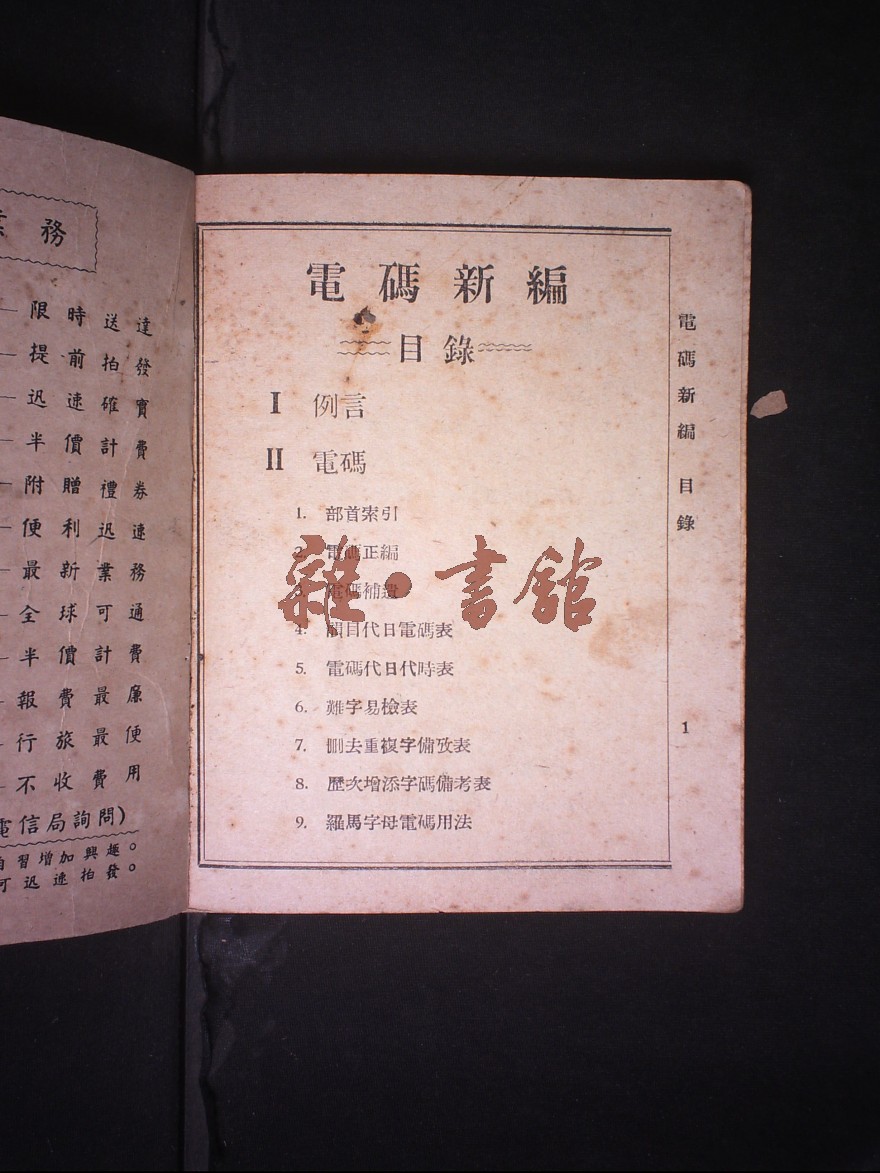 務
限時送達
提前拍發
迅速確實
半價計費
附贈禮券
便利迅速
最新業務
全球可通
半價計費
報費最廉
行旅最便
不收費用
信局詢問)
習增加興趣。
可迅速拍發。
電碼新編
目錄
I 例言
II 電碼
1. 部首索引
2. 電碼正編
3. 電碼補遺
4. 韻目代日電碼表
5. 電碼代日代時表
6. 難字易檢表
7. 刪去重複字備攷表
8. 歷次增添字碼備考表
9. 羅馬字母電碼用法
雜·書館
電碼新編 目錄
1